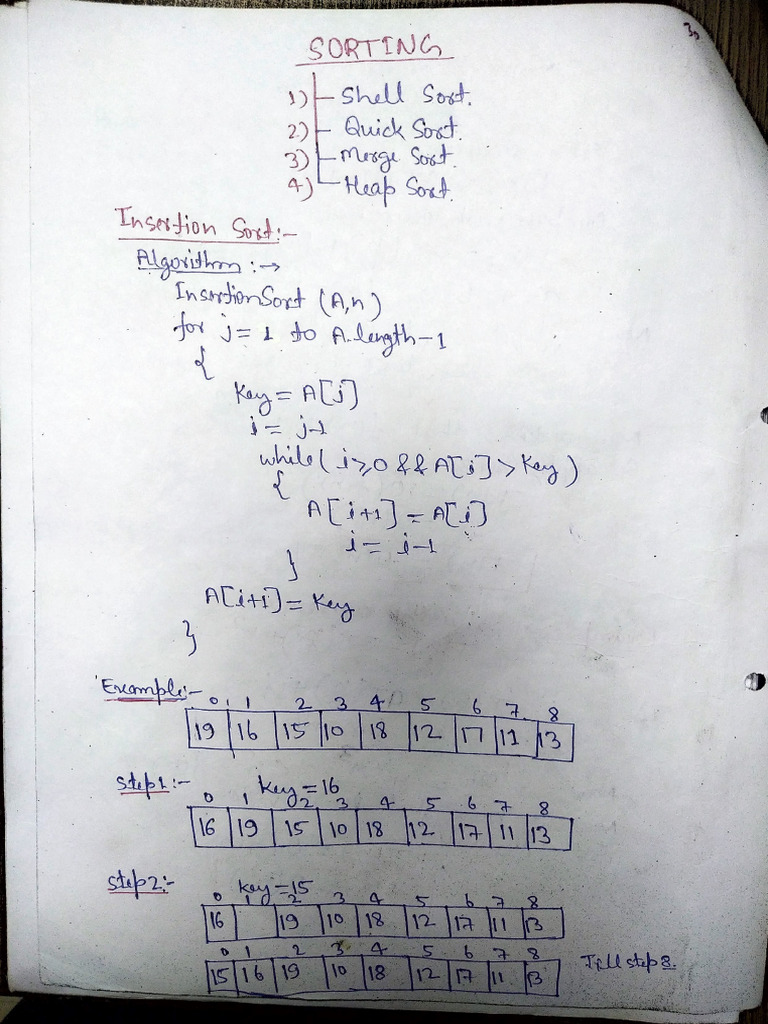 30
SORTING
1) Shell Sort.
2) Quick Sort.
3) Merge Sort.
4) Heap Sort.
Insertion Sort:-
Algorithm :→
InsertionSort (A,n)
for j = 1 to A.length-1
{
Key = A[j]
i = j-1
while( i≥0 && A[i] > Key )
{
A[i+1] = A[i]
i = i-1
}
A[i+1] = Key
}
Example:-
0 1 2 3 4 5 6 7 8
19 16 15 10 18 12 17 11 13
Step1:- Key = 16
0 1 2 3 4 5 6 7 8
16 19 15 10 18 12 17 11 13
Step2:- Key = 15
0 1 2 3 4 5 6 7 8
16 19 10 18 12 17 11 13
0 1 2 3 4 5 6 7 8
15 16 19 10 18 12 17 11 13 Till step 8.